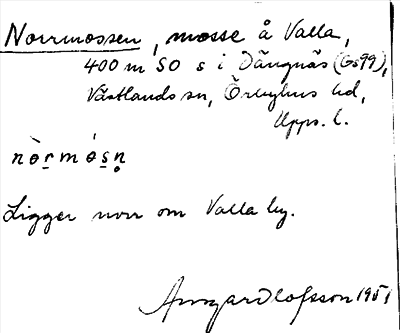 Norrmossen, mosse å Valla,
400 m SO s i Dängnäs (Gs99),
Västlands sn, Örbyhus hd,
Upps. l.
nòrmósn̥
Ligger norr om Valla by.
Olofsson 1951